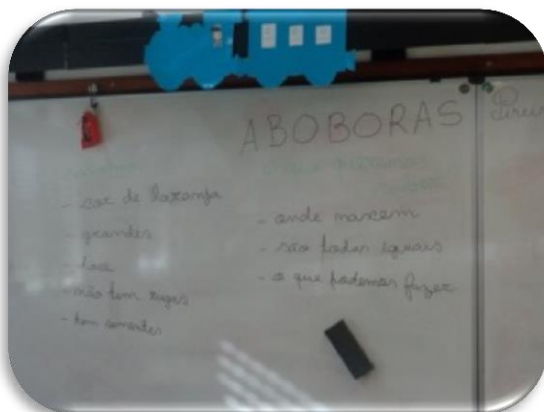 ABOBORAS
- cor de laranja
- grandes
- doce
- não tem rugas
- tem sementes
- onde nascem
- são todas iguais
- o que podemos fazer